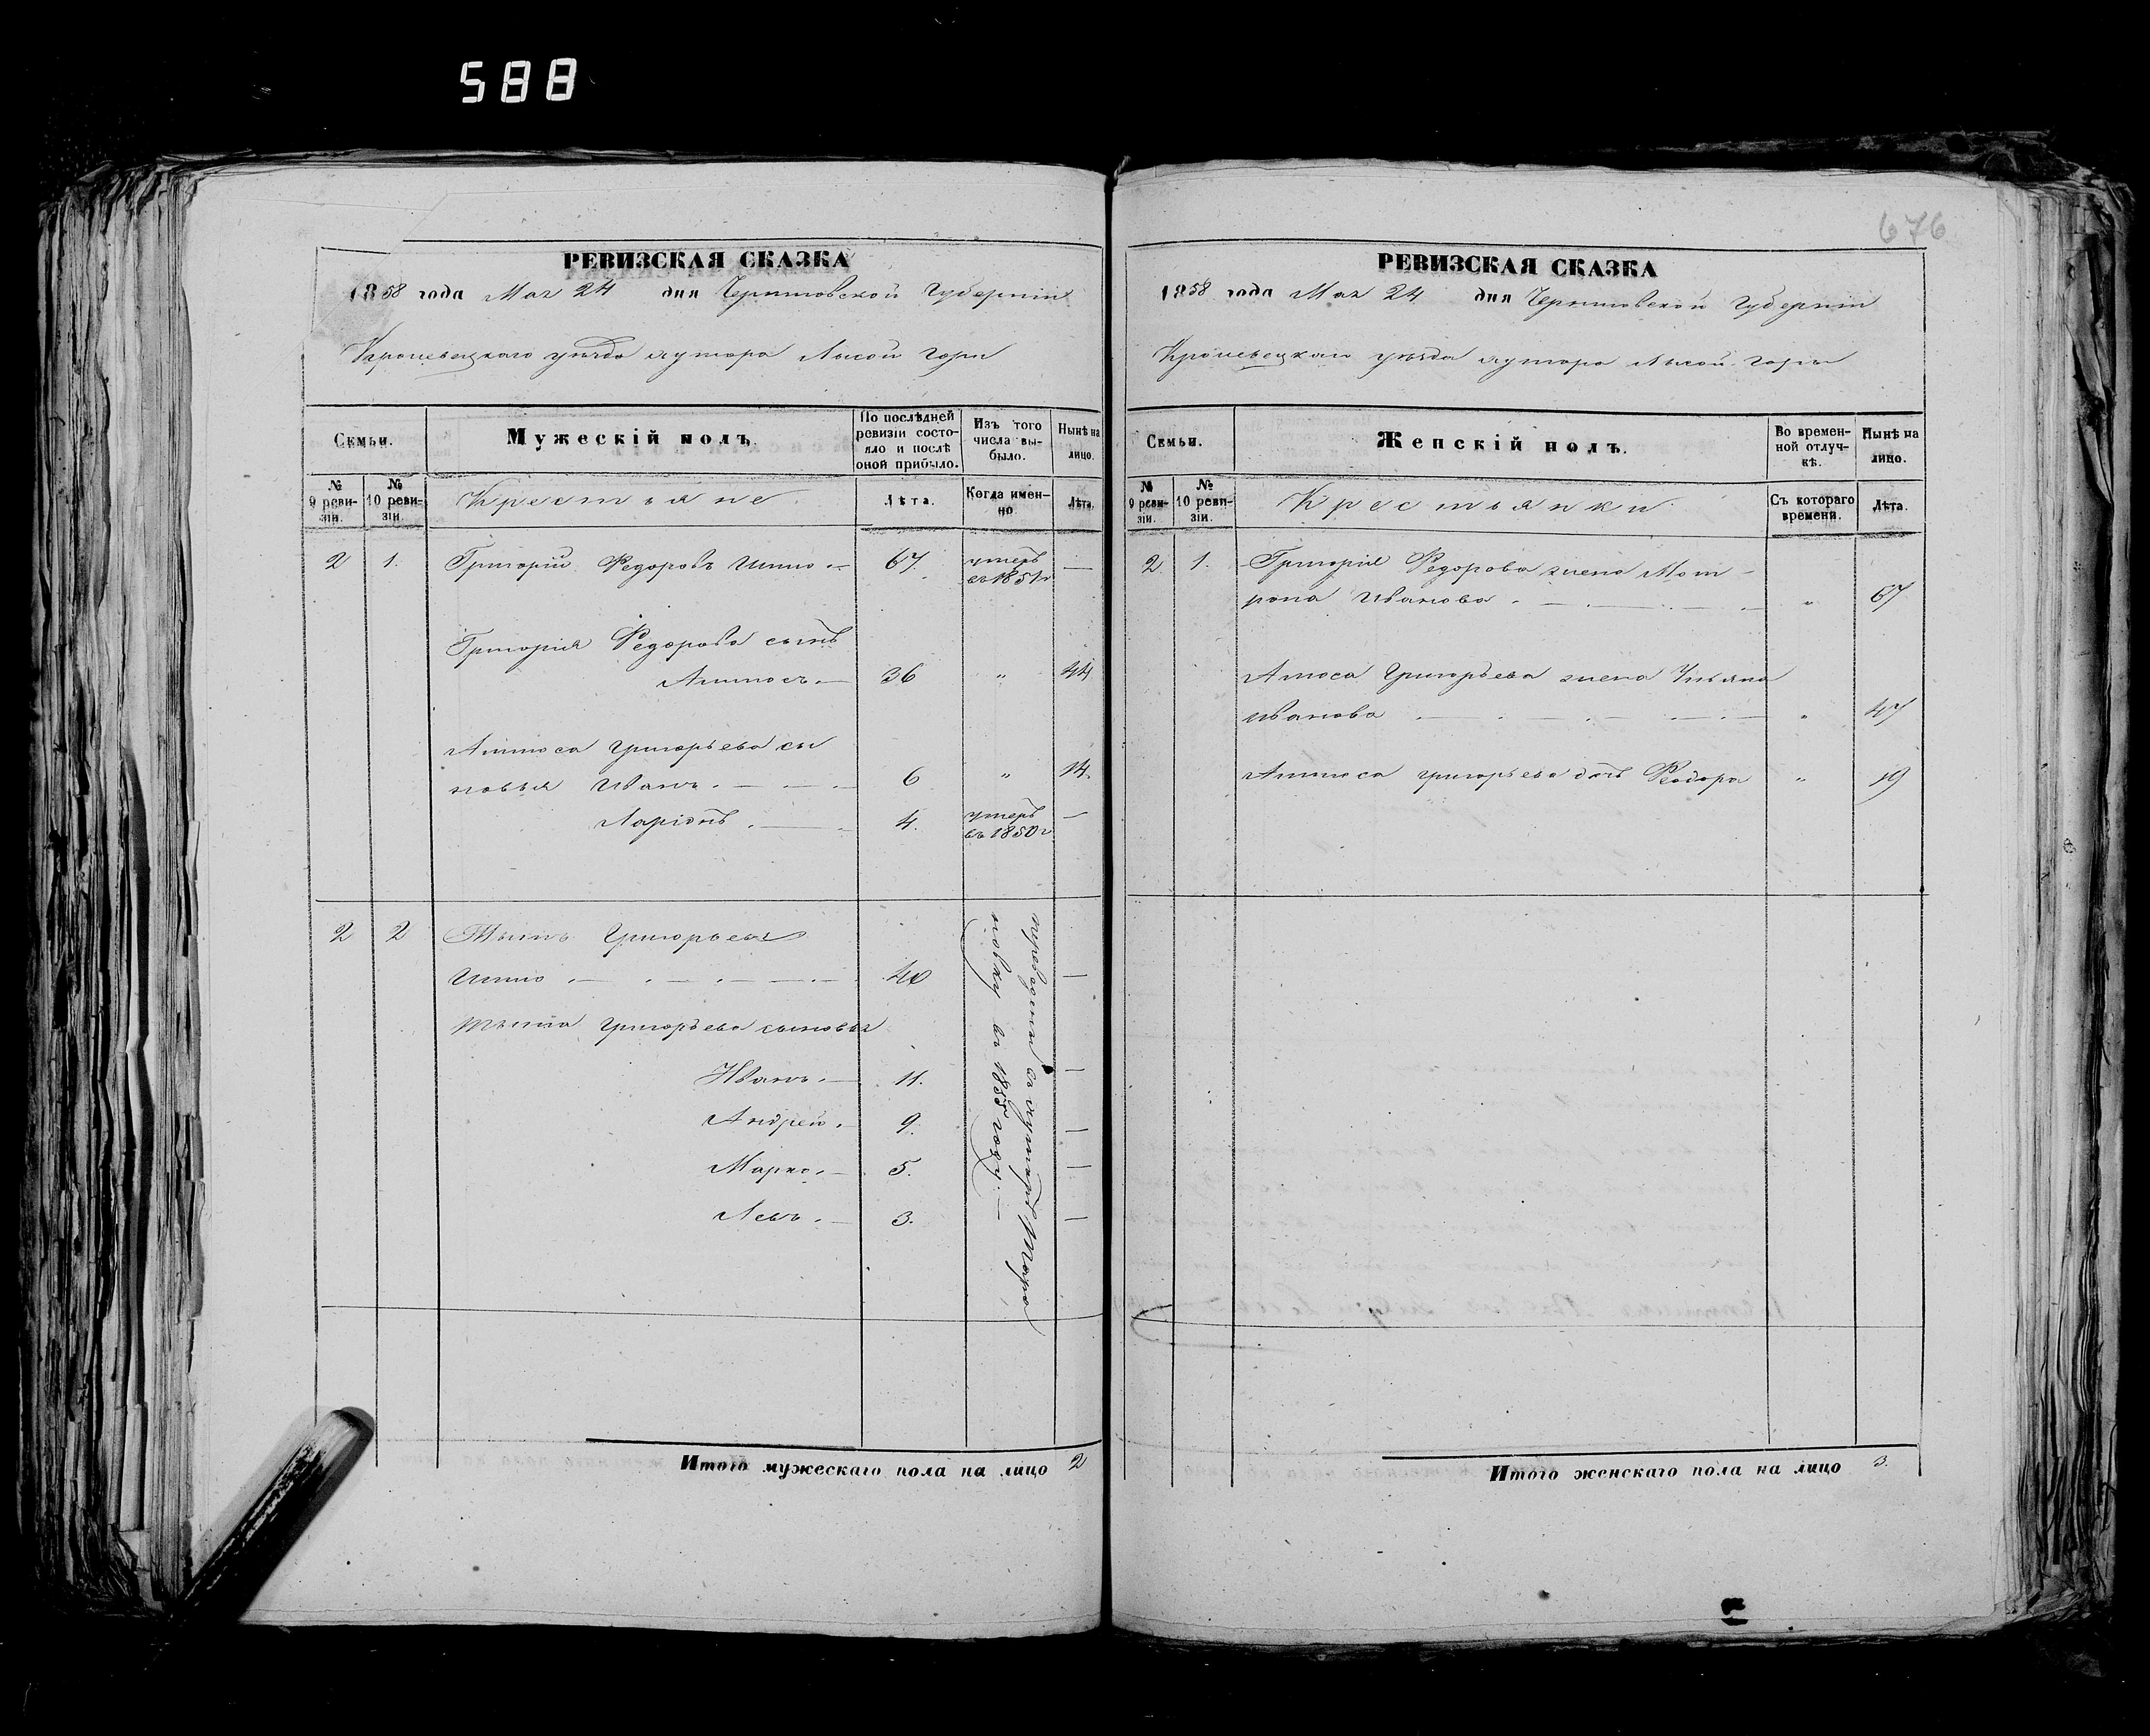 588
676
РЕВИЗСКАЯ СКАЗКА
1858 года Мая 24 дня Черниговской Губерніи
Кролевецкаго уѣзда хутора Лысой горы
Семьи.
Мужескій полъ.
По послѣдней ревизіи состояло и послѣ оной прибыло.
Изъ того числа выбыло.
Нынѣ на лицо.
№ 9 ревизіи.
№ 10 ревизіи.
Крестьяне
Лѣта.
Когда именно
Лѣта.
2 1. Григорій Федоровъ 67. умеръ въ 1851г —
Григорія Федорова сынъ
Аммосъ. 36 " 44
Аммоса Григорьева сы
новья Иванъ. 6 " 14.
Ларіонъ. 4. умеръ въ 1850г —
2 2 Григорьевъ
40 —
Григорьева сыновья
Иванъ. 11. —
Андрей. 9. —
Марко. 5. —
Левъ. 3. —
переведены въ хуторъ
въ 1855 году.
Итого мужескаго пола на лицо 2
РЕВИЗСКАЯ СКАЗКА
1858 года Мая 24 дня Черниговской Губерніи
Кролевецкаго уѣзда хутора Лысой горы
Семьи.
Женскій полъ.
Во временной отлучкѣ.
Нынѣ на лицо.
№ 9 ревизіи.
№ 10 ревизіи.
Крестьянки
Съ котораго времени.
Лѣта.
2. 1. Григорія Федорова жена Мот
рона Иванова. " 67
Амоса Григорьева жена Ульяна
Иванова " 47
Аммоса Григорьева дочь Феодора " 19
Итого женскаго пола на лицо 3.